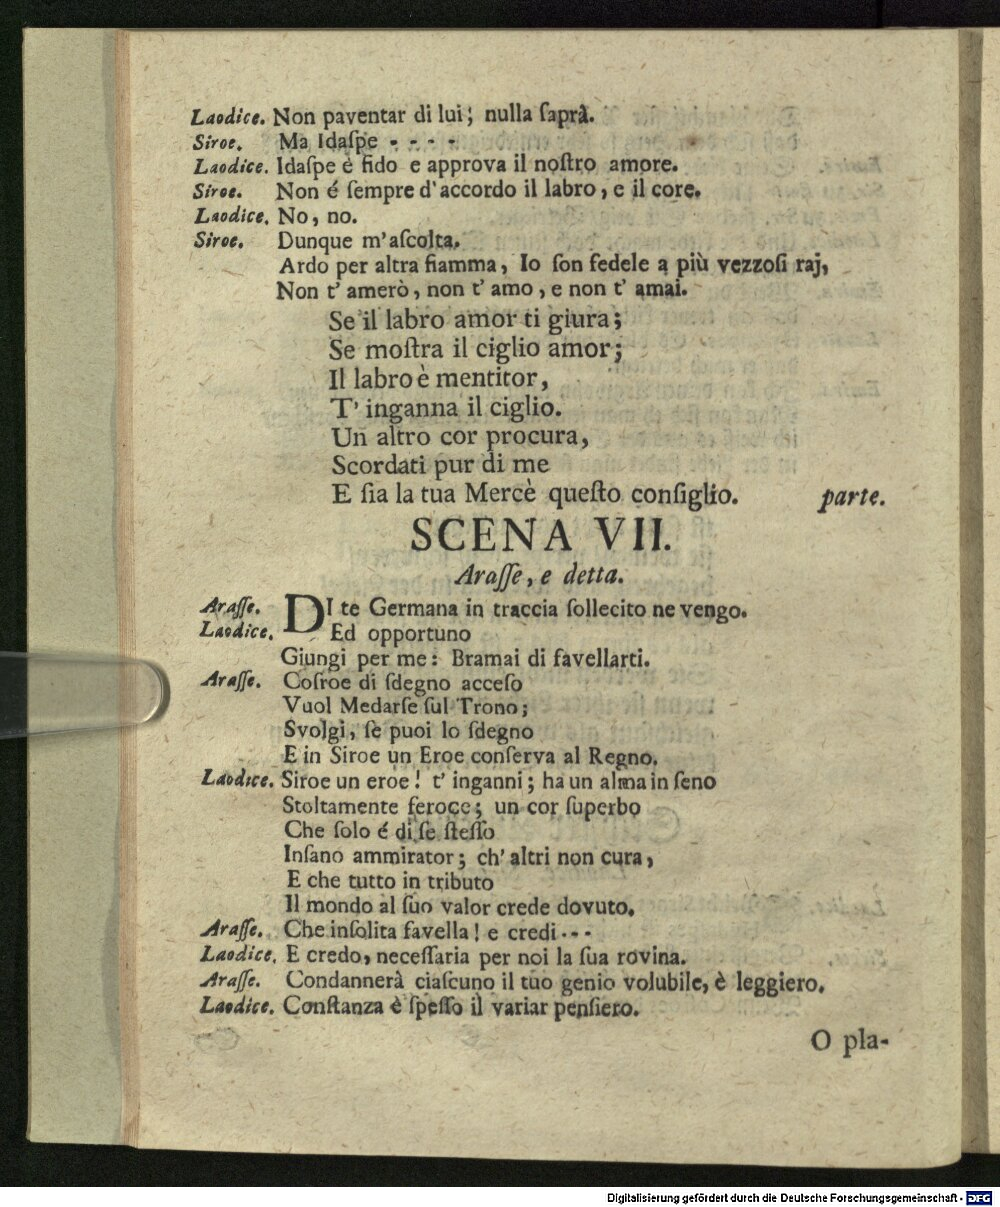 Laodice. Non paventar di lui; nulla ſaprà.
Siroe. Ma Idaſpe - - - -
Laodice. Idaſpe è fido e approva il noſtro amore.
Siroe. Non é ſempre d'accordo il labro, e il core.
Laodice. No, no.
Siroe. Dunque m'aſcolta.
Ardo per altra fiamma, Io ſon fedele a più vezzoſi raj,
Non t' amerò, non t' amo, e non t' amai.
Se il labro amor ti giura;
Se moſtra il ciglio amor;
Il labro è mentitor,
T' inganna il ciglio.
Un altro cor procura,
Scordati pur di me
E ſia la tua Mercè queſto conſiglio. parte.
SCENA VII.
Araſſe, e detta.
Araſſe. DI te Germana in traccia ſollecito ne vengo.
Laodice. Ed opportuno
Giungi per me: Bramai di favellarti.
Araſſe. Coſroe di ſdegno acceſo
Vuol Medarſe ſul Trono;
Svolgi, ſe puoi lo ſdegno
E in Siroe un Eroe conſerva al Regno.
Laodice. Siroe un eroe! t' inganni; ha un alma in ſeno
Stoltamente feroce; un cor ſuperbo
Che ſolo é di ſe ſteſſo
Inſano ammirator; ch' altri non cura,
E che tutto in tributo
Il mondo al ſuo valor crede dovuto.
Araſſe. Che inſolita favella! e credi - - -
Laodice. E credo, neceſſaria per noi la ſua rovina.
Araſſe. Condannerà ciaſcuno il tuo genio volubile, è leggiero.
Laodice. Conſtanza è ſpeſſo il variar penſiero.
O pla-
Digitalisierung gefördert durch die Deutsche Forschungsgemeinschaft - DFG